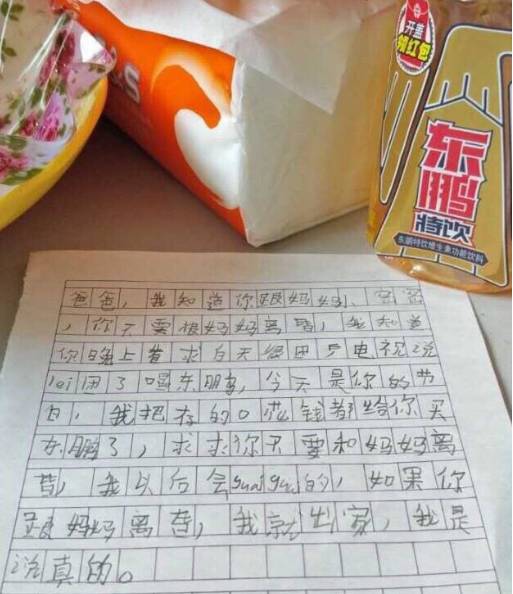 开盖
赢红包
东鹏
特饮
东鹏特饮维生素功能饮料
爸爸,我知道你跟妈妈、爸爸
,你不要跟妈妈离昏,我知道
你晚上看求白天
电视说
lei困了喝东鹏,今天是你的节
日,我把存的0花钱都给你买
东鹏了,求求你不要和妈妈离
昏,我以后会guai guai的,如果你
跟妈妈离昏,我就出家,我是
说真的。